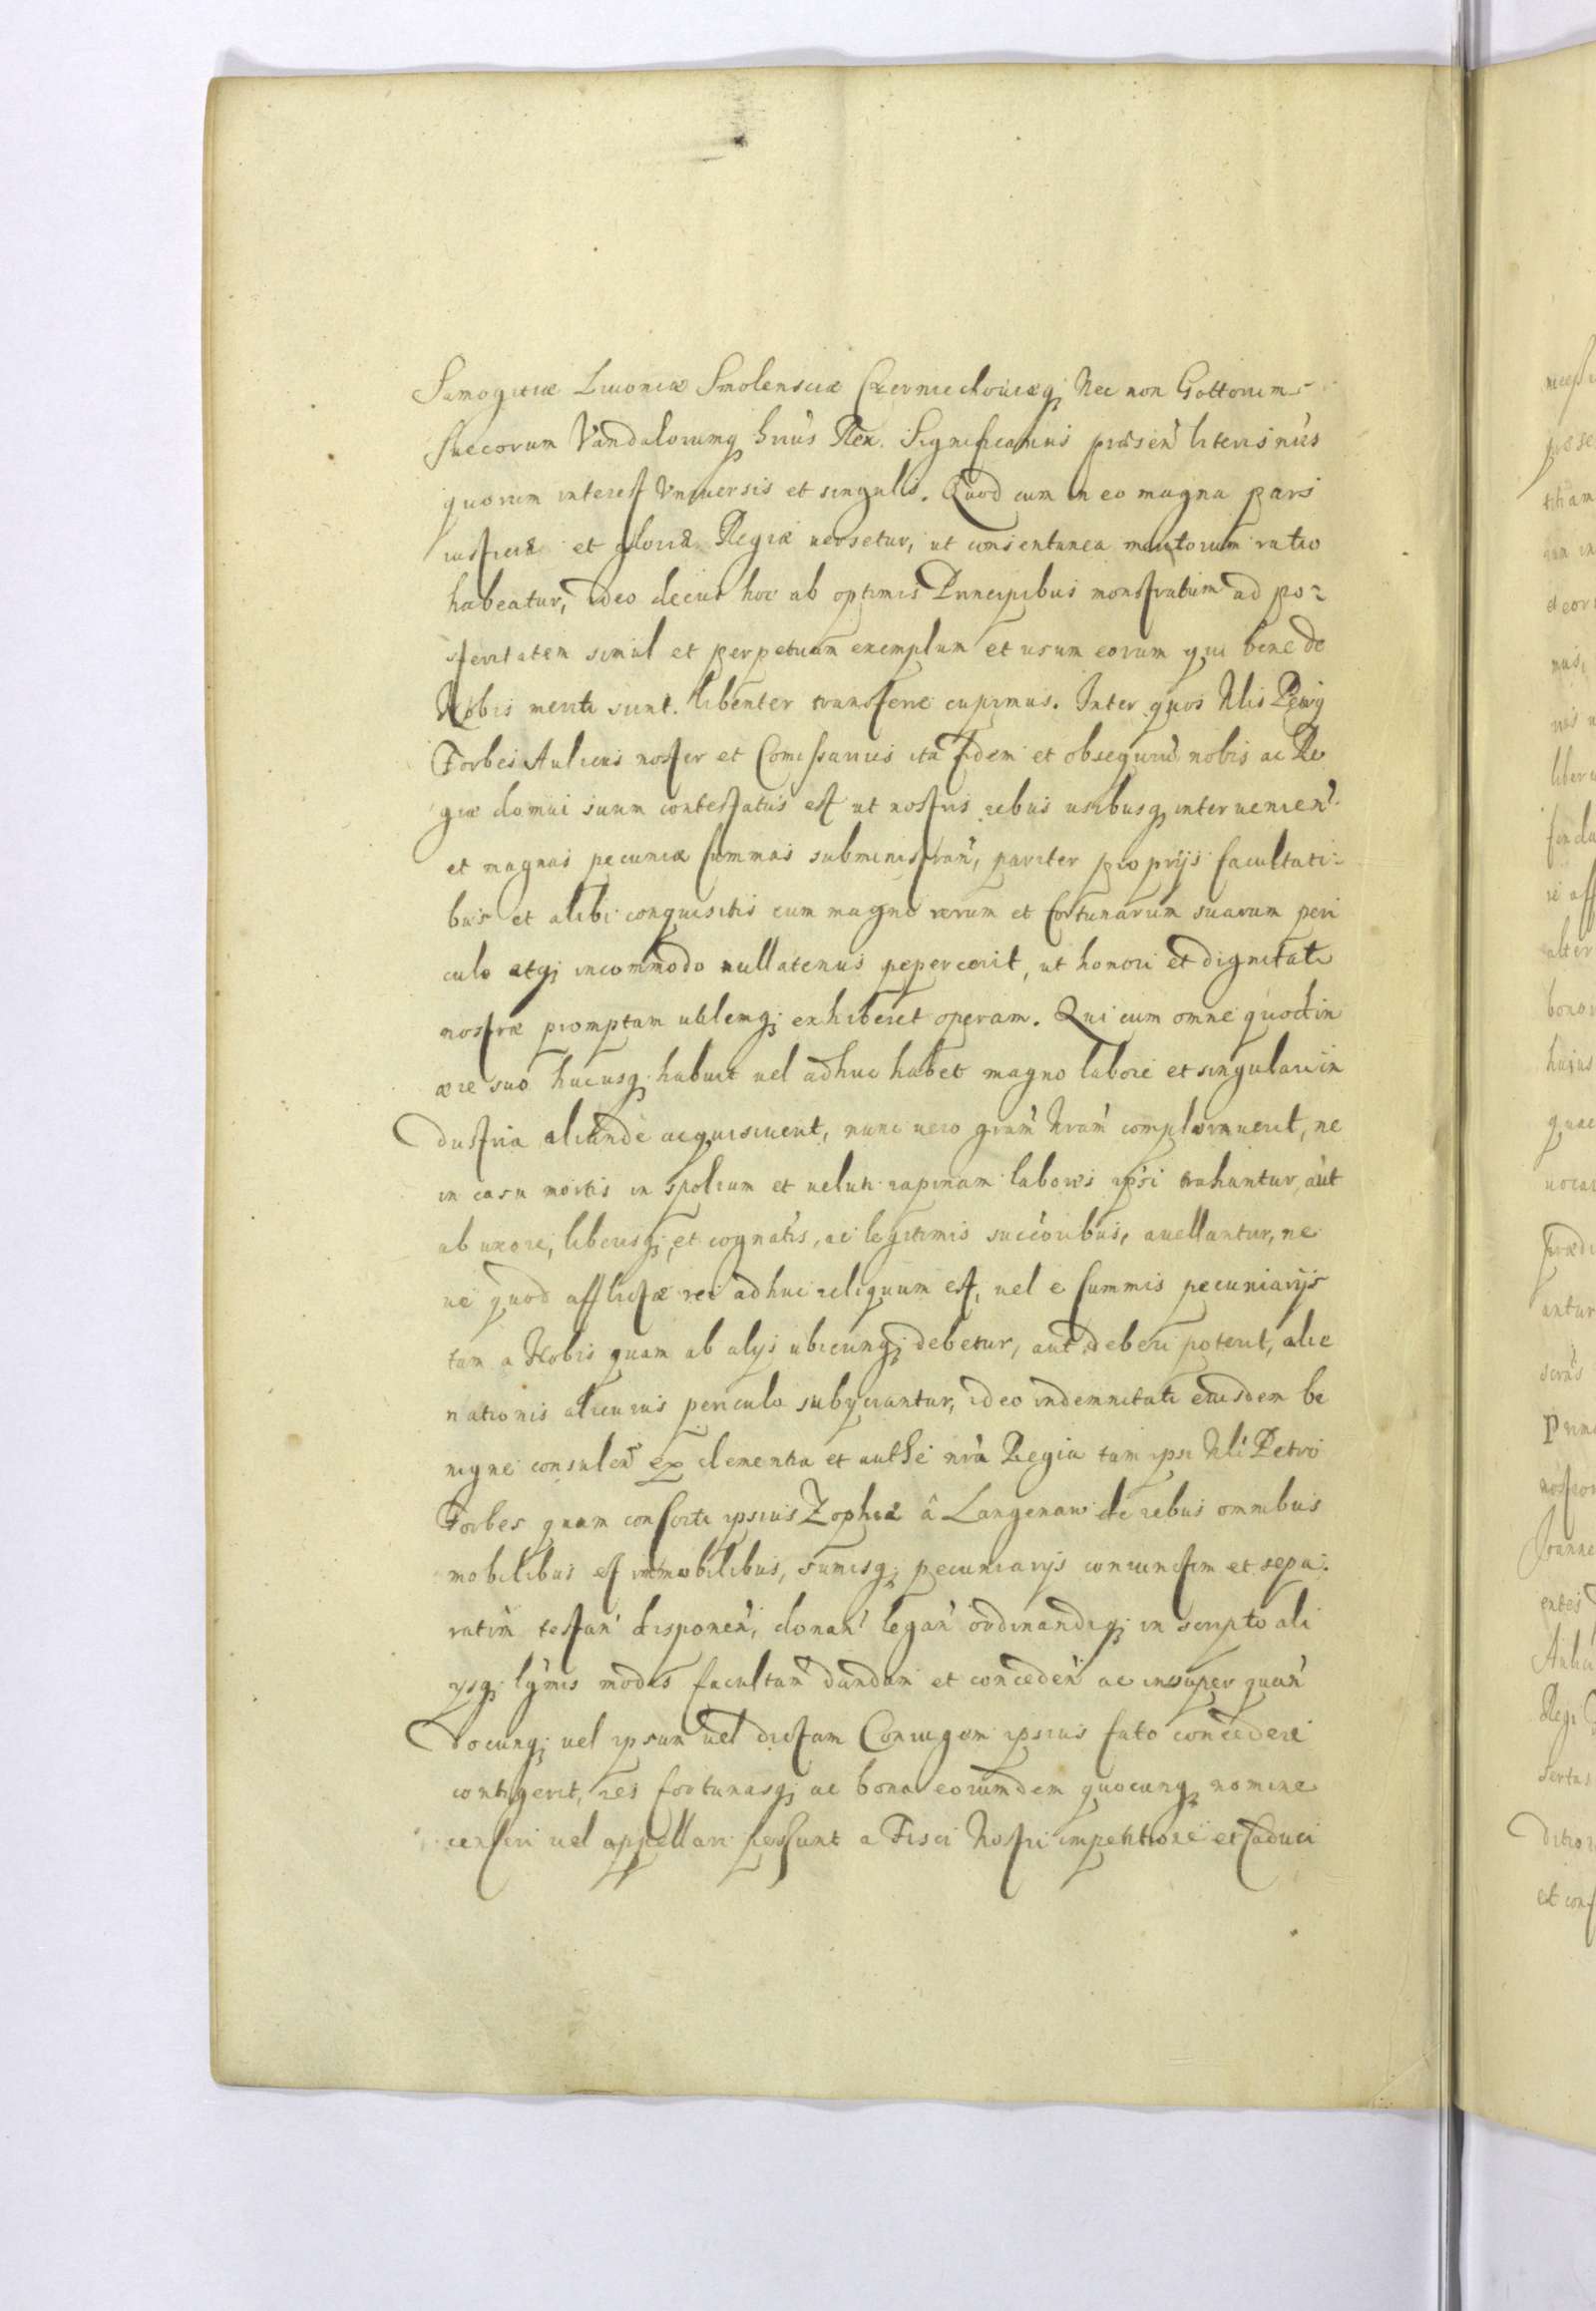 Samogitiæ Livoniæ Smolensciæ Czerniechoviæq; Nec non Gottorum
Suecorum Vandalorumq; hrius Rex. Significamus præsen̄ literis nr̄is
quorum interest Universis et singulis. Quod cum in eo magna pars
iustitiæ et gloriæ Regiæ versetur, ut consentanea meritorum ratio
habeatur, ideo decus hoc ab optimis Principibus monstratum ad po-
steritatem simul et perpetuum exemplum et usum eorum qui bene de
Nobis meriti sunt. libenter transferre cupimus. Inter quos Nlis
Forbes Aulicus noster et Comissarius ita fidem et obsequiū nobis ac Re
giæ domui suum contestatus est ut nostris rebus usibusq; intervenien̄
et magnas pecuniæ summas subministran̄, pariter proprijs facultati-
bus et alibi conquisitis cum magno rerum et fortunarum suarum peri
culo atq; incommodo nullatenus pepercerit, ut honori et dignitati
nostræ promptam utilemq; exhiberet operam. Qui cum omne quod in
ære suo hucusq; habuit vel adhuc habet magno labore et singulari in
dustria aliunde acquisiverit, nunc vero gram̄ Nram̄ imploraverit, ne
in casu mortis in spolium et veluti rapinam labores ipsi trahantur, aut
ab uxore, liberisq;, et cognatis, ac legitimis succoribus, avellantur, ne
ve quod afflictæ rei adhuc reliquum est, vel e summis pecuniarijs
tam a Nobis quam ab alijs ubicunq; debetur, aut deberi poterit, alie
nationis alicuius periculo subijciantur, ideo indemnitati eiusdem be
nigne consulen̄ ex clementia et autħe nrā Regia tam ipsi Nli Petro
Forbes quam consorti ipsius Zophiæ â Langenaw de rebus omnibus
mobilibus et immobilibus, sumisq; pecuniarijs coniunctim et sepa-
ratim testan̄ disponen̄, donan̄ legan̄ ordinandiq; in scripto ali
ysq; lg̃mis modis facultam̄ dandam et conceden̄ ac insuper quan̄
docunq; vel ipsum vel dictam Coniugem ipsius fato concedere
contigerit, res fortunasq; ac bona eorumdem quocunq; nomine
censeri vel appellari possunt a Fisci Nostri impetitione et Caduci